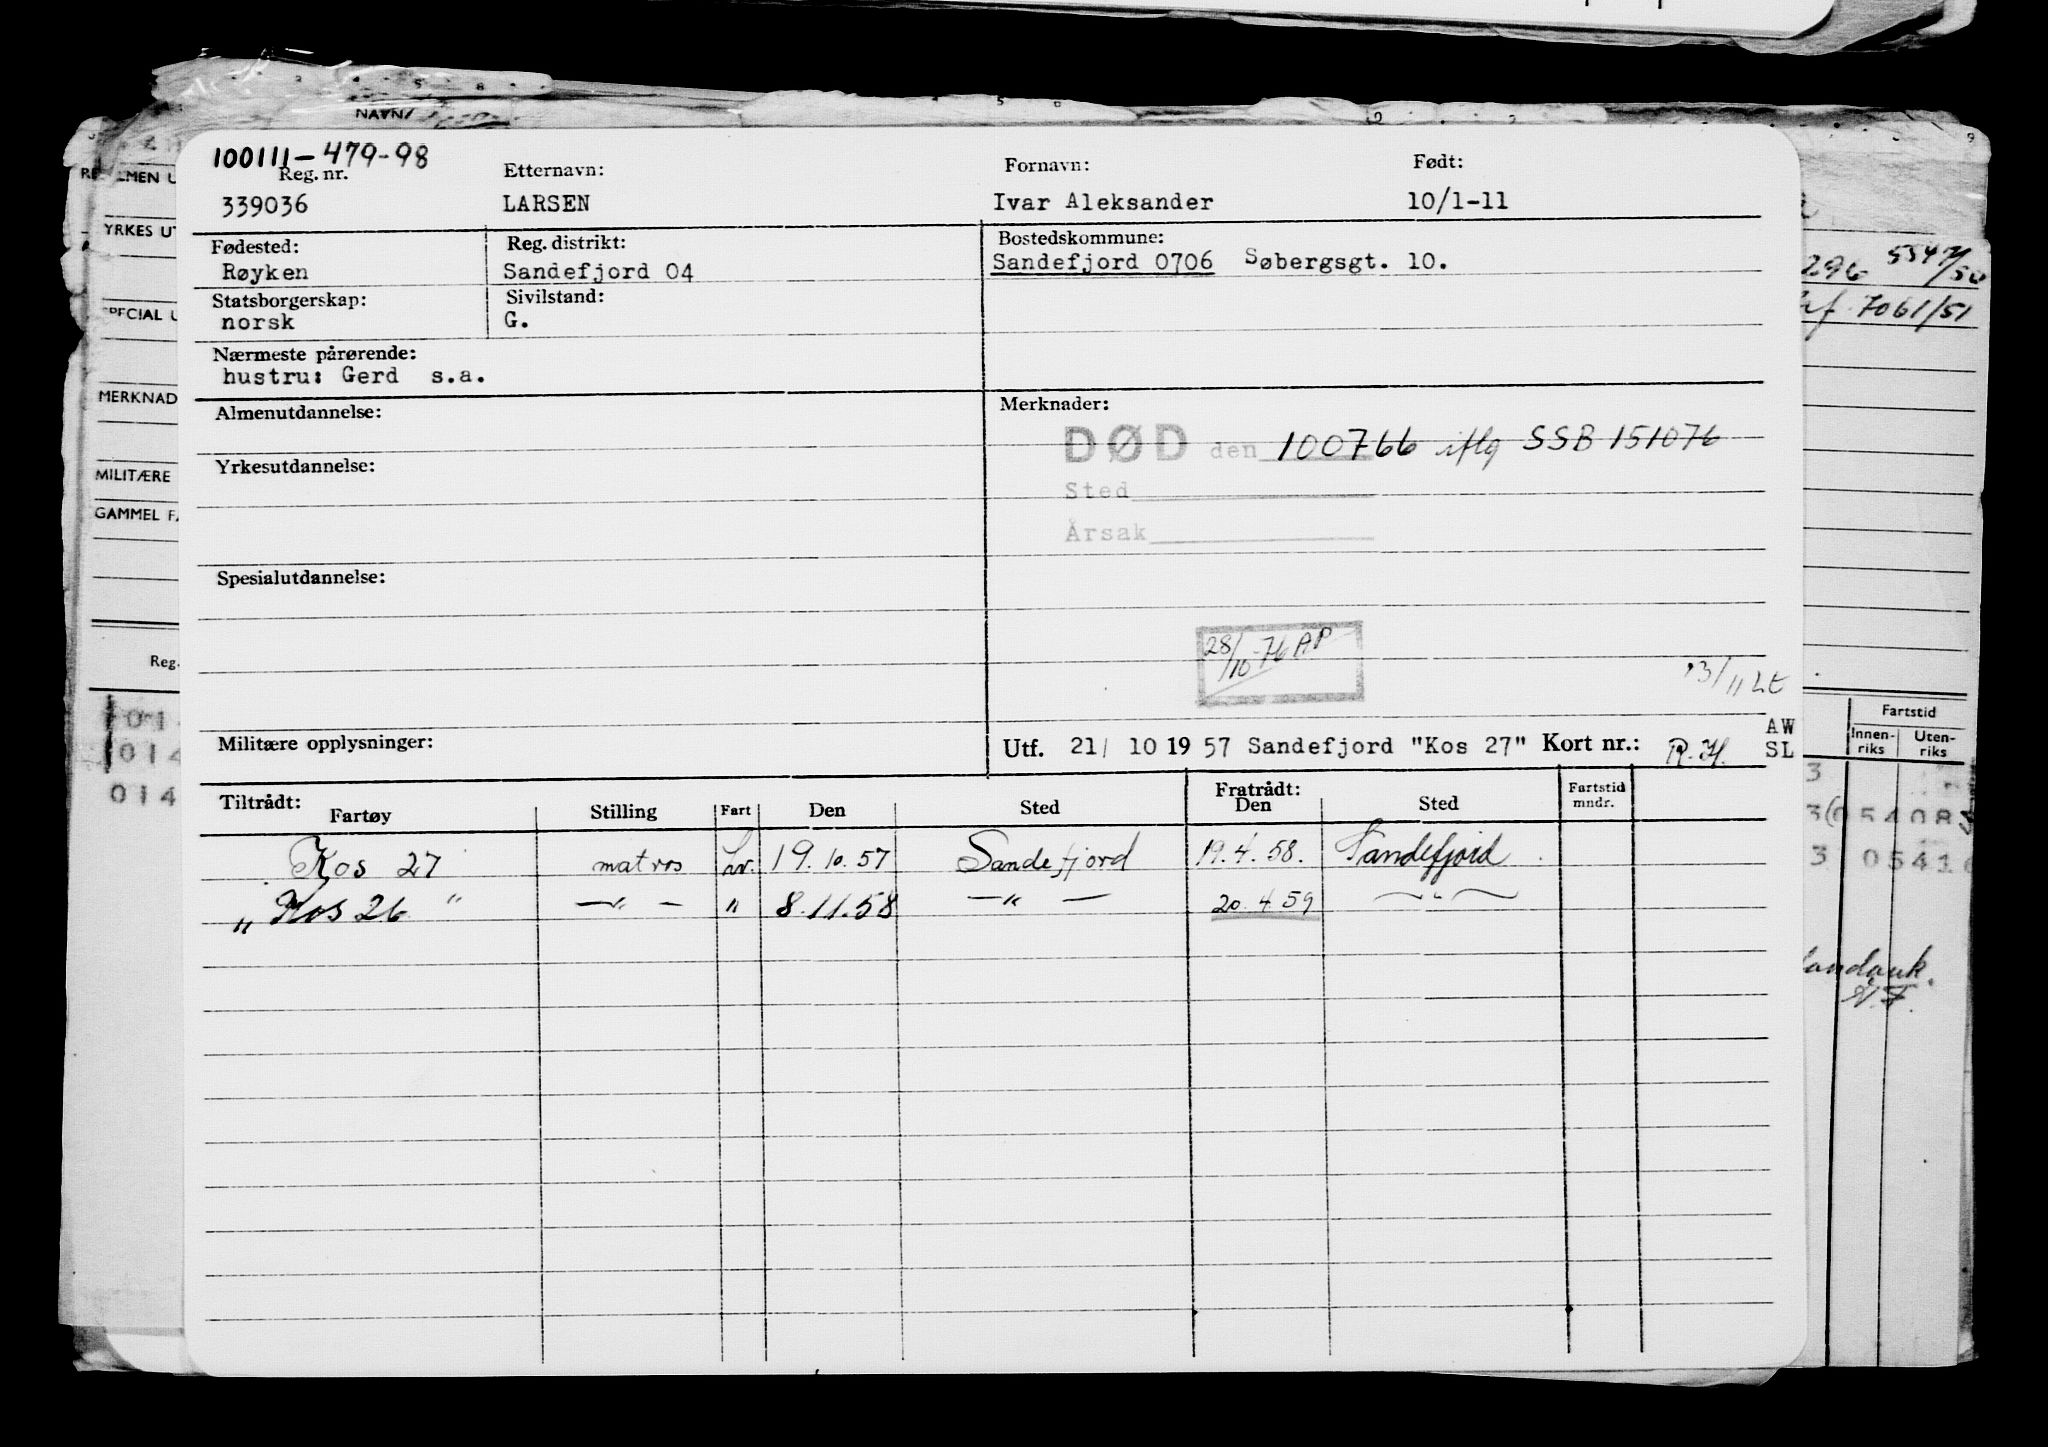 NAVN
100111-479-98
Reg. nr. Etternavn: Fornavn: Født:
339036 LARSEN Ivar Aleksander 10/1-11
Fødested: Reg. distrikt: Bostedskommune:
Røyken Sandefjord 04 Sandefjord 0706 Søbergsgt. 10.
Statsborgerskap: Sivilstand:
norsk G.
Nærmeste pårørende:
hustru: Gerd s.a.
Almenutdannelse: Merknader:
DØD den 100766 iflg SSB 151076
Yrkesutdannelse:
Sted
Årsak
Spesialutdannelse:
28/10-76 AP
Militære opplysninger: Utf. 21/ 10 19 57 Sandefjord "Kos 27" Kort nr.: R.H. AW SL
Tiltrådt: Fratrådt:
Fartøy Stilling Fart Den Sted Den Sted Fartstid mndr.
Kos 27 matros 19.10.57 Sandefjord 19.4.58. Sandefjord
„Kos 26" —„— " 8.11.58 —"— 20.4.59 —"—
YRKES UT
SPECIAL U
MERKNAD
MILITÆRE
GAMMEL FA
Reg.
014
014
296 5547/50
7061/51
Fartstid
Innen-riks Uten-riks
3
3 05408
3 0541